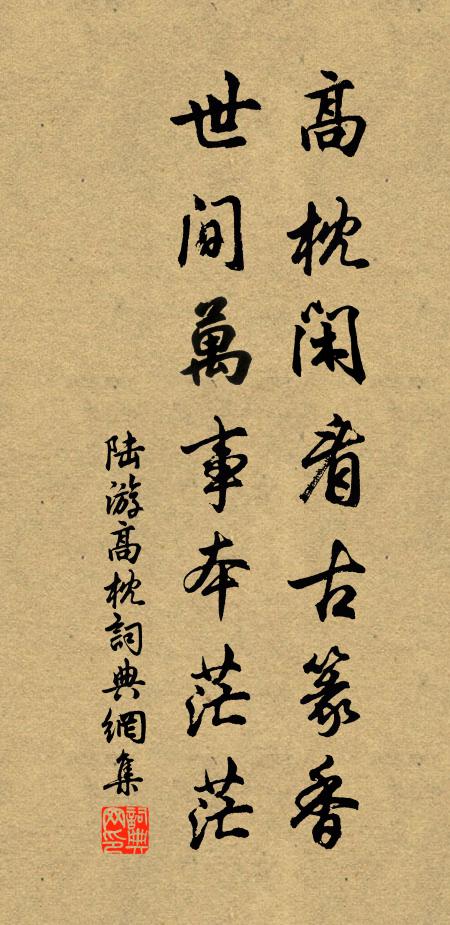 高枕閑看古篆香
世间萬事本茫茫
陆游高枕詞典網集
詞典網印